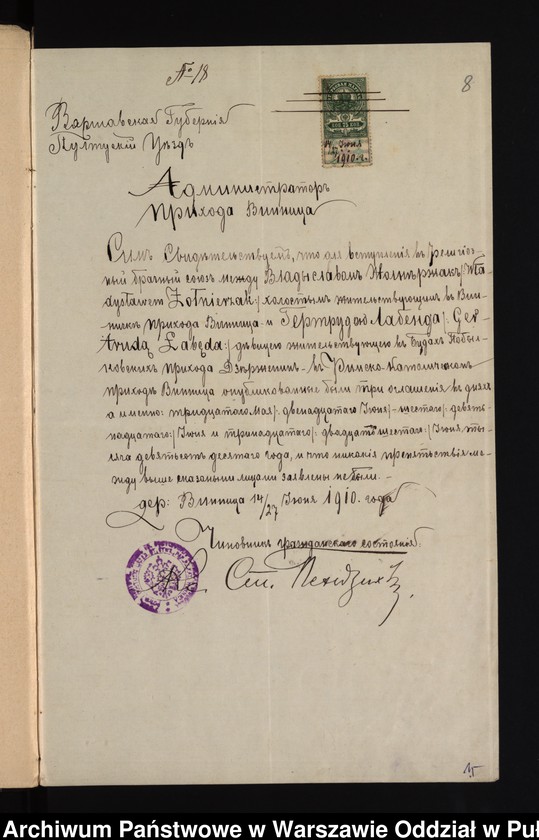 № 18
8
Варшавская Губернія
Пултускій Уѣздъ
14 Іюня
1910 г.
Администраторъ
прихода Винница
Симъ Свидѣтельствуетъ, что для вступленія въ религіоз-
ный брачный союз между Владыславомъ Жолнержакъ /Wła
dysławem Żołnierzak/ холостымъ жительствующимъ въ Вин-
ницѣ прихода Винница и Гертрудою Лабенда /: Ger-
trudą Łabęda :/ дѣвицею жительствующею въ Будахъ Побыл-
ковскихъ прихода Дзержениъ - въ Римско-Католическомъ
приходѣ Винница опубликованные были три оглашенія въ дняхъ
а именно: тридцатого Мая /: двенадцатого Іюня /- шестого /: девят-
надцатого :/ Іюня и тринадцатого /: двадцать шестого :/ Іюня ты-
сяча девятьсотъ десятого года, и что никакія препятствія ме-
жду выше сказаными лицами заявлены не были. -
дер: Винница 14/27 Іюня 1910. года
Чиновникъ гражданскаго состоянія
Кс.
15
Archiwum Państwowe w Warszawie Oddział w Puł